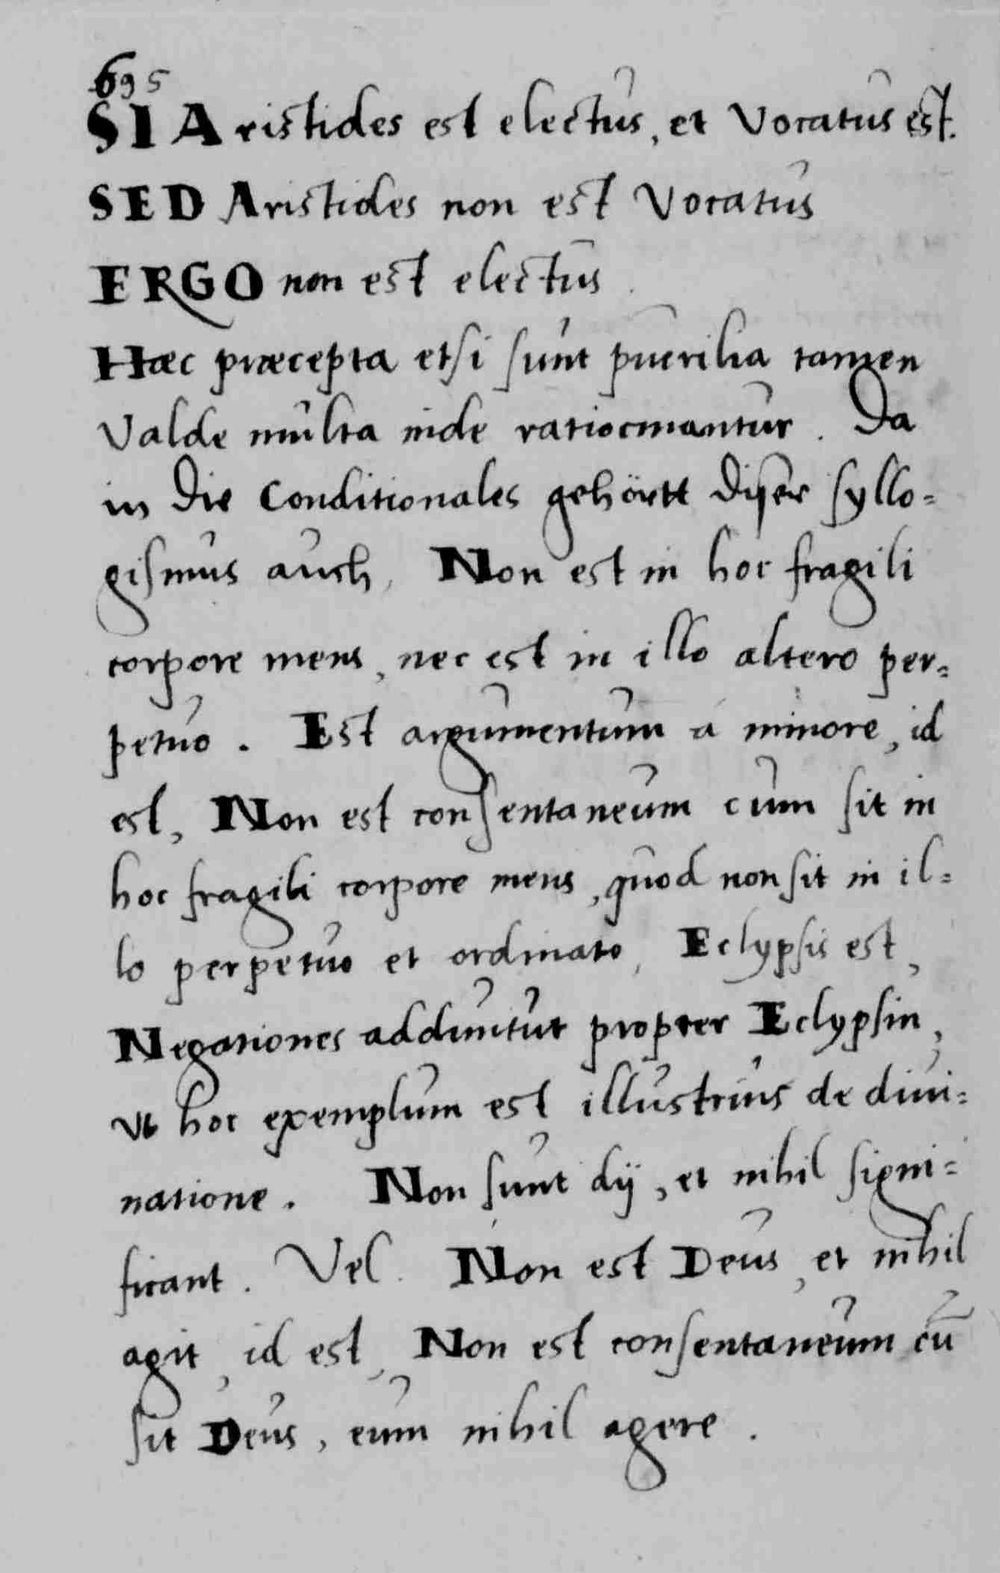 695
SI Aristides est electus, et Vocatus est.
SED Aristides non est Vocatus
ERGO non est electus
Hæc præcepta etsi sunt puerilia tamen
Valde multa inde ratiocinantur. Da
in die Conditionales gehörtt diser syllo-
gismus auch, Non est in hoc fragili
corpore mens, nec est in illo altero per-
petuo. Est argumentum a minore, id
est, Non est consentaneum cum sit in
hoc fragili corpore mens, quod non sit in il-
lo perpetuo et ordinato, Eclypsis est,
Negationes adduntur propter Eclypsin,
Vt hoc exemplum est illustrius de diui-
natione. Non sunt dij, et nihil signi-
ficant. Vel. Non est Deus, et nihil
agit, id est, Non est consentaneum cū
sit Deus, eum nihil agere.